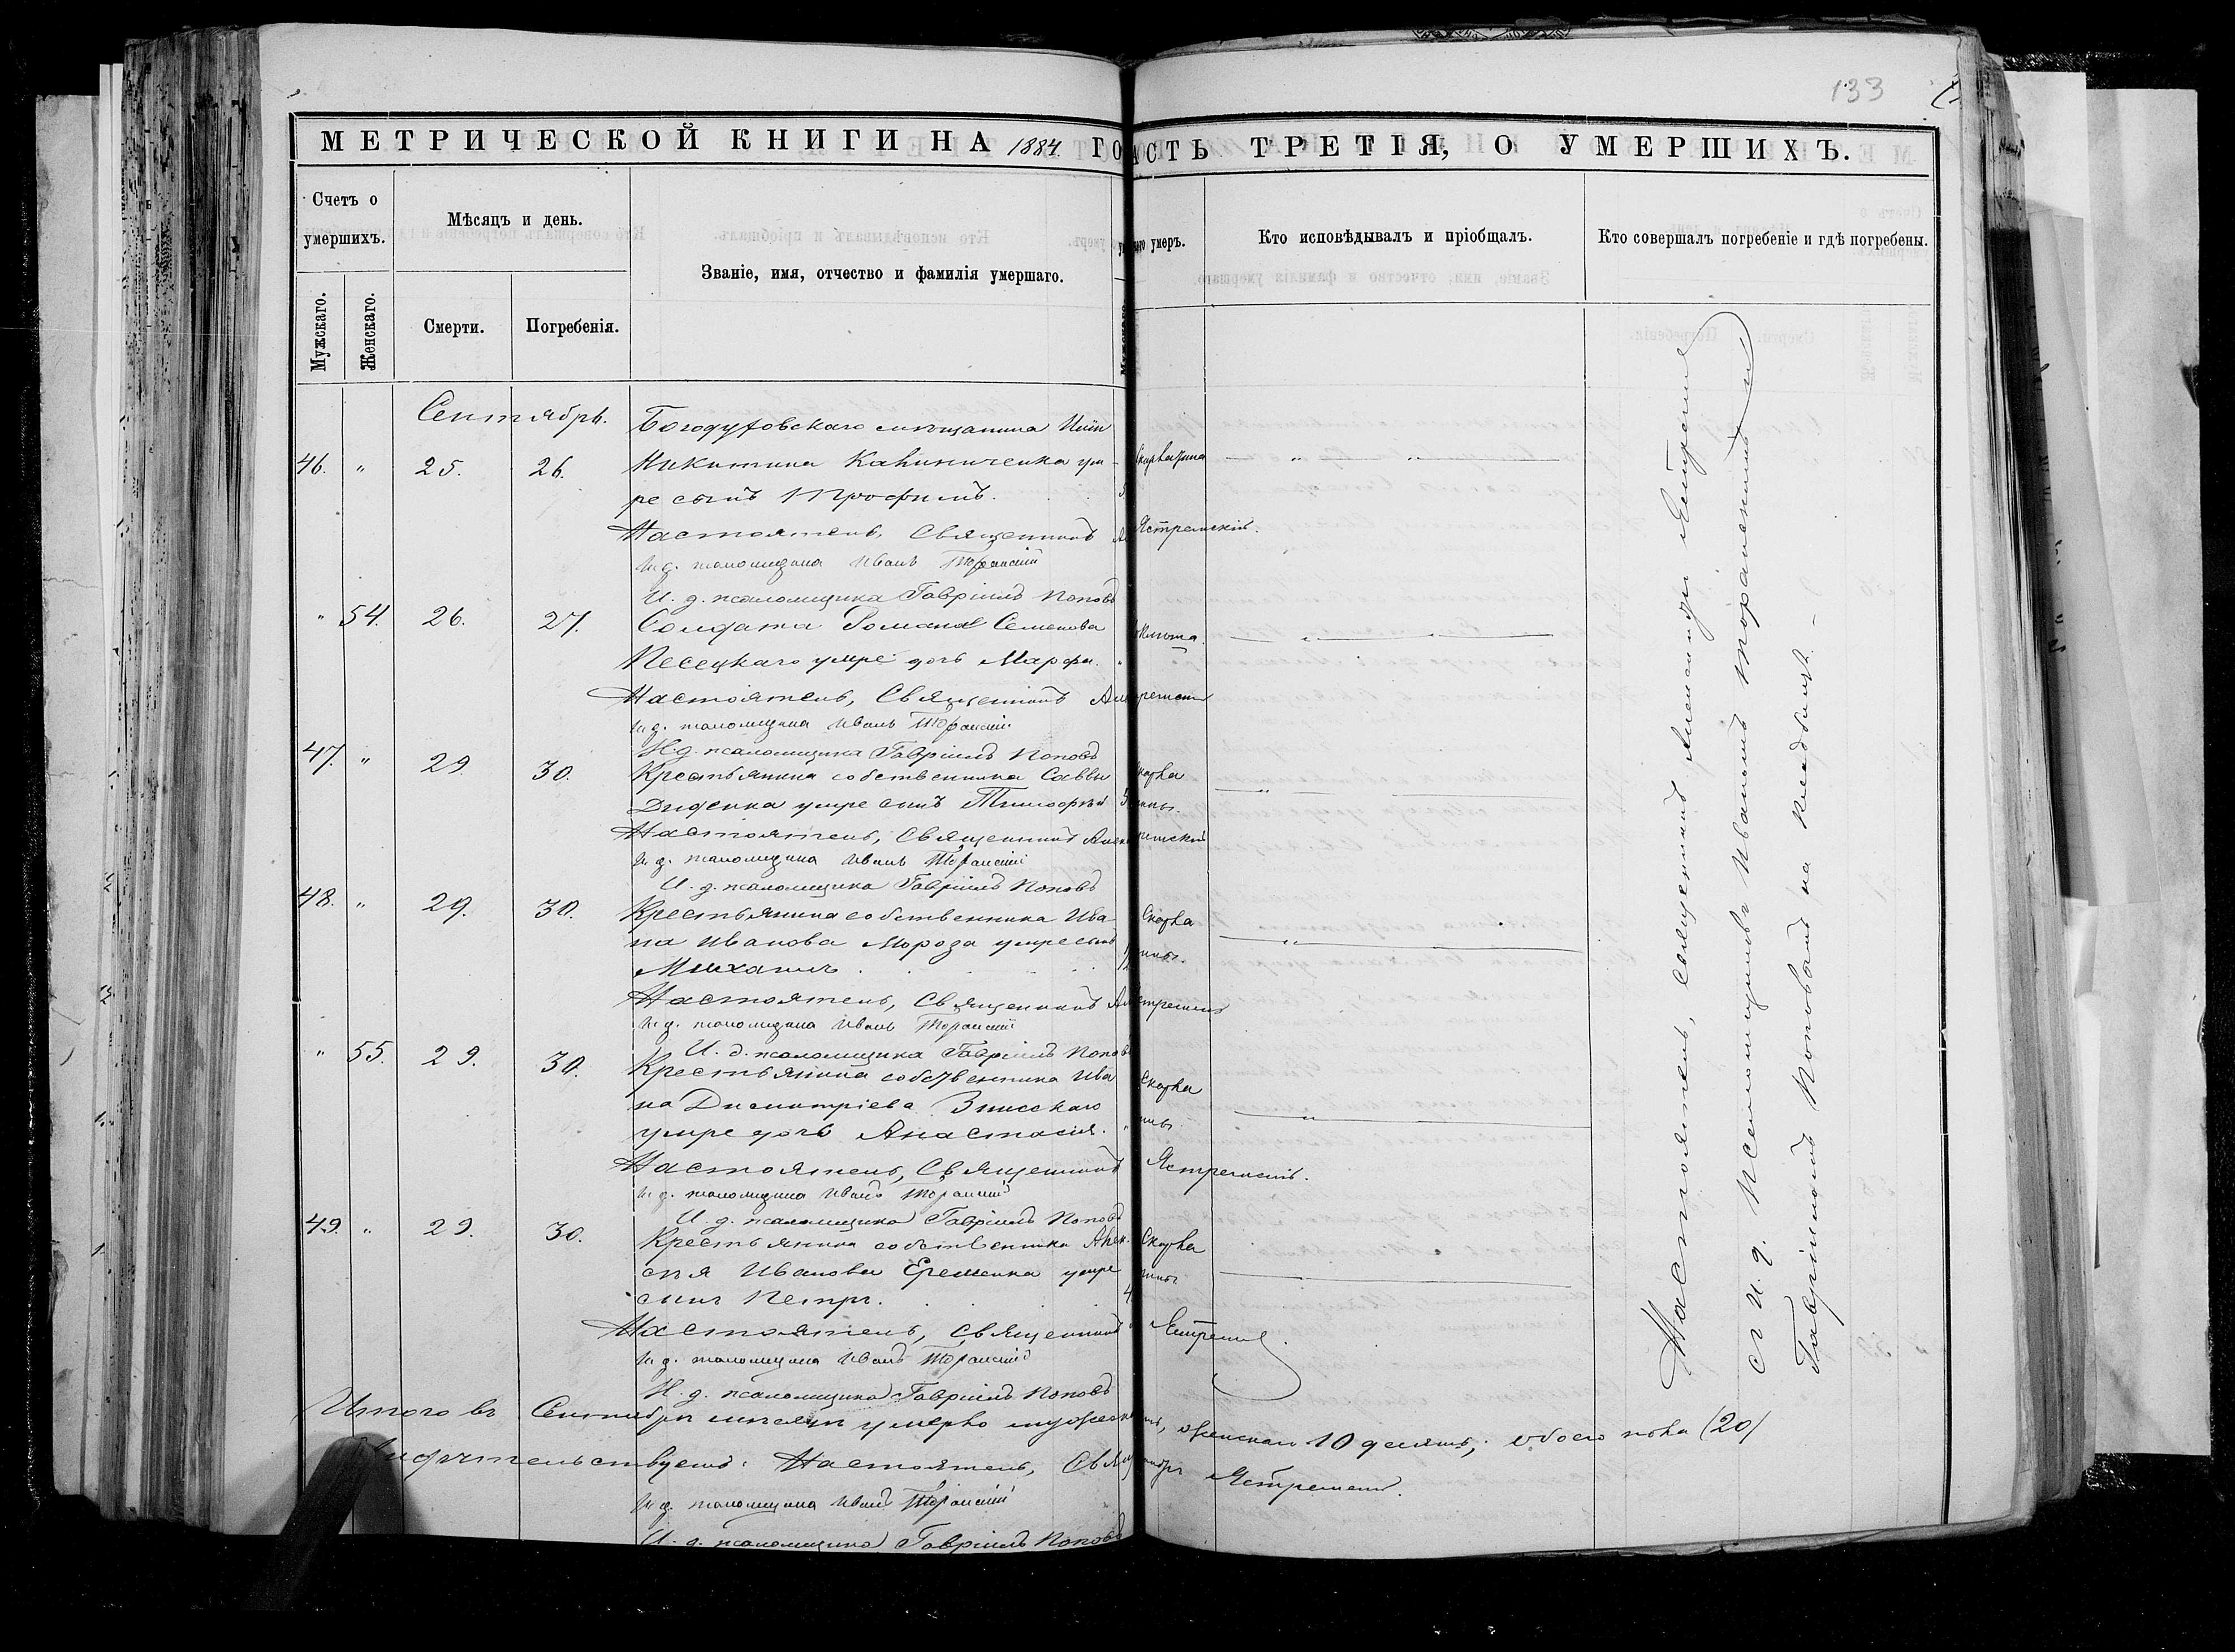 133
МЕТРИЧЕСКОЙ КНИГИ НА 1884 ГО
АСТЬ ТРЕТІЯ, О УМЕРШИХЪ.
Счетъ о умершихъ.
Мѣсяцъ и день.
Званіе, имя, отчество и фамилія умершаго.
Мужскаго.
Женскаго.
Смерти.
Погребенія.
умеръ.
Кто исповѣдывалъ и пріобщалъ.
Кто совершалъ погребеніе и гдѣ погребены.
Сентябрь.
Богодуховскаго мѣщанина
46. " 25. 26. Никитина Калиниченка уме- Скарлатина
ре сынъ Трофимъ.
Настоятель, Священникъ Ястремскій.
И. д. псаломщика Иванъ Торанскій
И. д. псаломщика Гавріилъ Поповъ
" 54. 26. 27. Солдата Романа Семенова
Песецкаго умре дочь Марфа.
Настоятель, Священникъ
И. д. псаломщика Иванъ Торанскій
И. д. псаломщика Гавріилъ Поповъ
47. " 29. 30. Крестьянина собственника Саввы Скарла
Диденка умре сынъ Тимофей 5 тины.
Настоятель, Священникъ
И. д. псаломщика Иванъ Торанскій
И. д. псаломщика Гавріилъ Поповъ
48. " 29. 30. Крестьянина собственника Ива Скарла
на Иванова Мороза умре сынъ тины.
Михаилъ
Настоятель, Священникъ
И. д. псаломщика Иванъ Торанскій
И. д. псаломщика Гавріилъ Поповъ
" 55. 29. 30. Крестьянина собственника Ива Скарла
на Димитріева умре дочь Анастасія.
Настоятель, Священникъ Ястремскій.
И. д. псаломщика Иванъ Торанскій
И. д. псаломщика Гавріилъ Поповъ
49. " 29. 30. Крестьянина собственника Алек Скарла
сѣя Иванова Еременка умре тины
сынъ Петръ. 4
Настоятель, Священникъ Ястремскій.
И. д. псаломщика Иванъ Торанскій
И. д. псаломщика Гавріилъ Поповъ
Итого въ Сентябрѣ мѣсяцѣ умерло женскаго 10 десять, обоего пола (20)
Настоятель, Ястремскій.
И. д. псаломщика Иванъ Торанскій
И. д. псаломщика Гавріилъ Поповъ
Настоятель, священникъ Александръ Ястремскій
съ и. д. псаломщиковъ Иваномъ Торанскимъ и
Гавріиломъ Поповымъ на кладбищѣ.